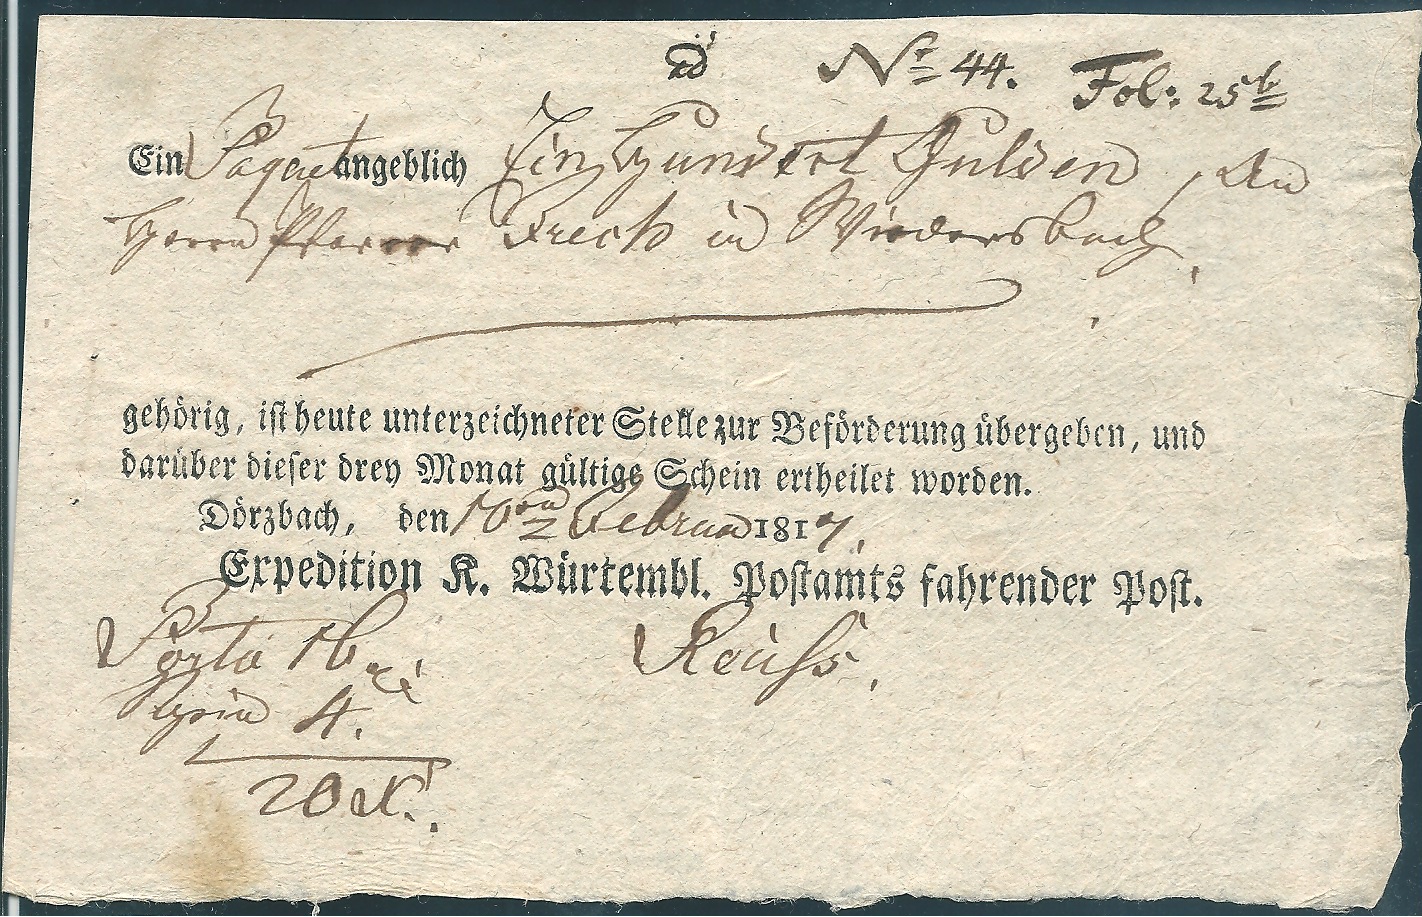 Nr. 44. Fol: 25b
Ein Paquet angeblich Ein Hundert Gulden, An
Herrn Pfarrer Frech in Wiedersbach,
gehörig, ist heute unterzeichneter Stelle zur Beförderung übergeben, und
darüber dieser drey Monat gültige Schein ertheilet worden.
Dörzbach, den 10ten Februar 1817.
Expedition K. Würtembl. Postamts fahrender Post.
Porto 16 xr Reuss.
Schein 4.
20 xr.